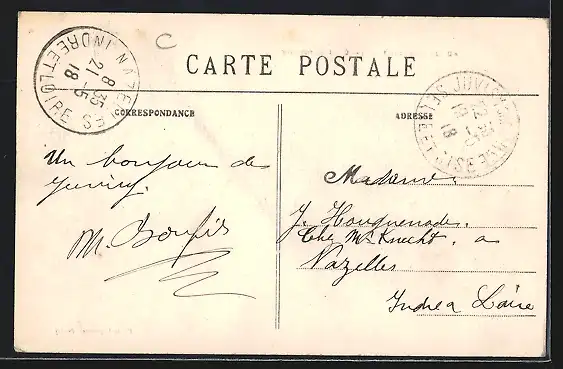 CARTE POSTALE
CORRESPONDANCE
ADRESSE
NAZELLES
INDRE ET LOIRE
8 35
21-5
18
JUVISY
SEINE ET OISE
18
Un bonjour de
Juvisy.
M.
Madame.
J. Houguenade.
Chez Mr Knecht. a
Nazelles
Indre a Loire